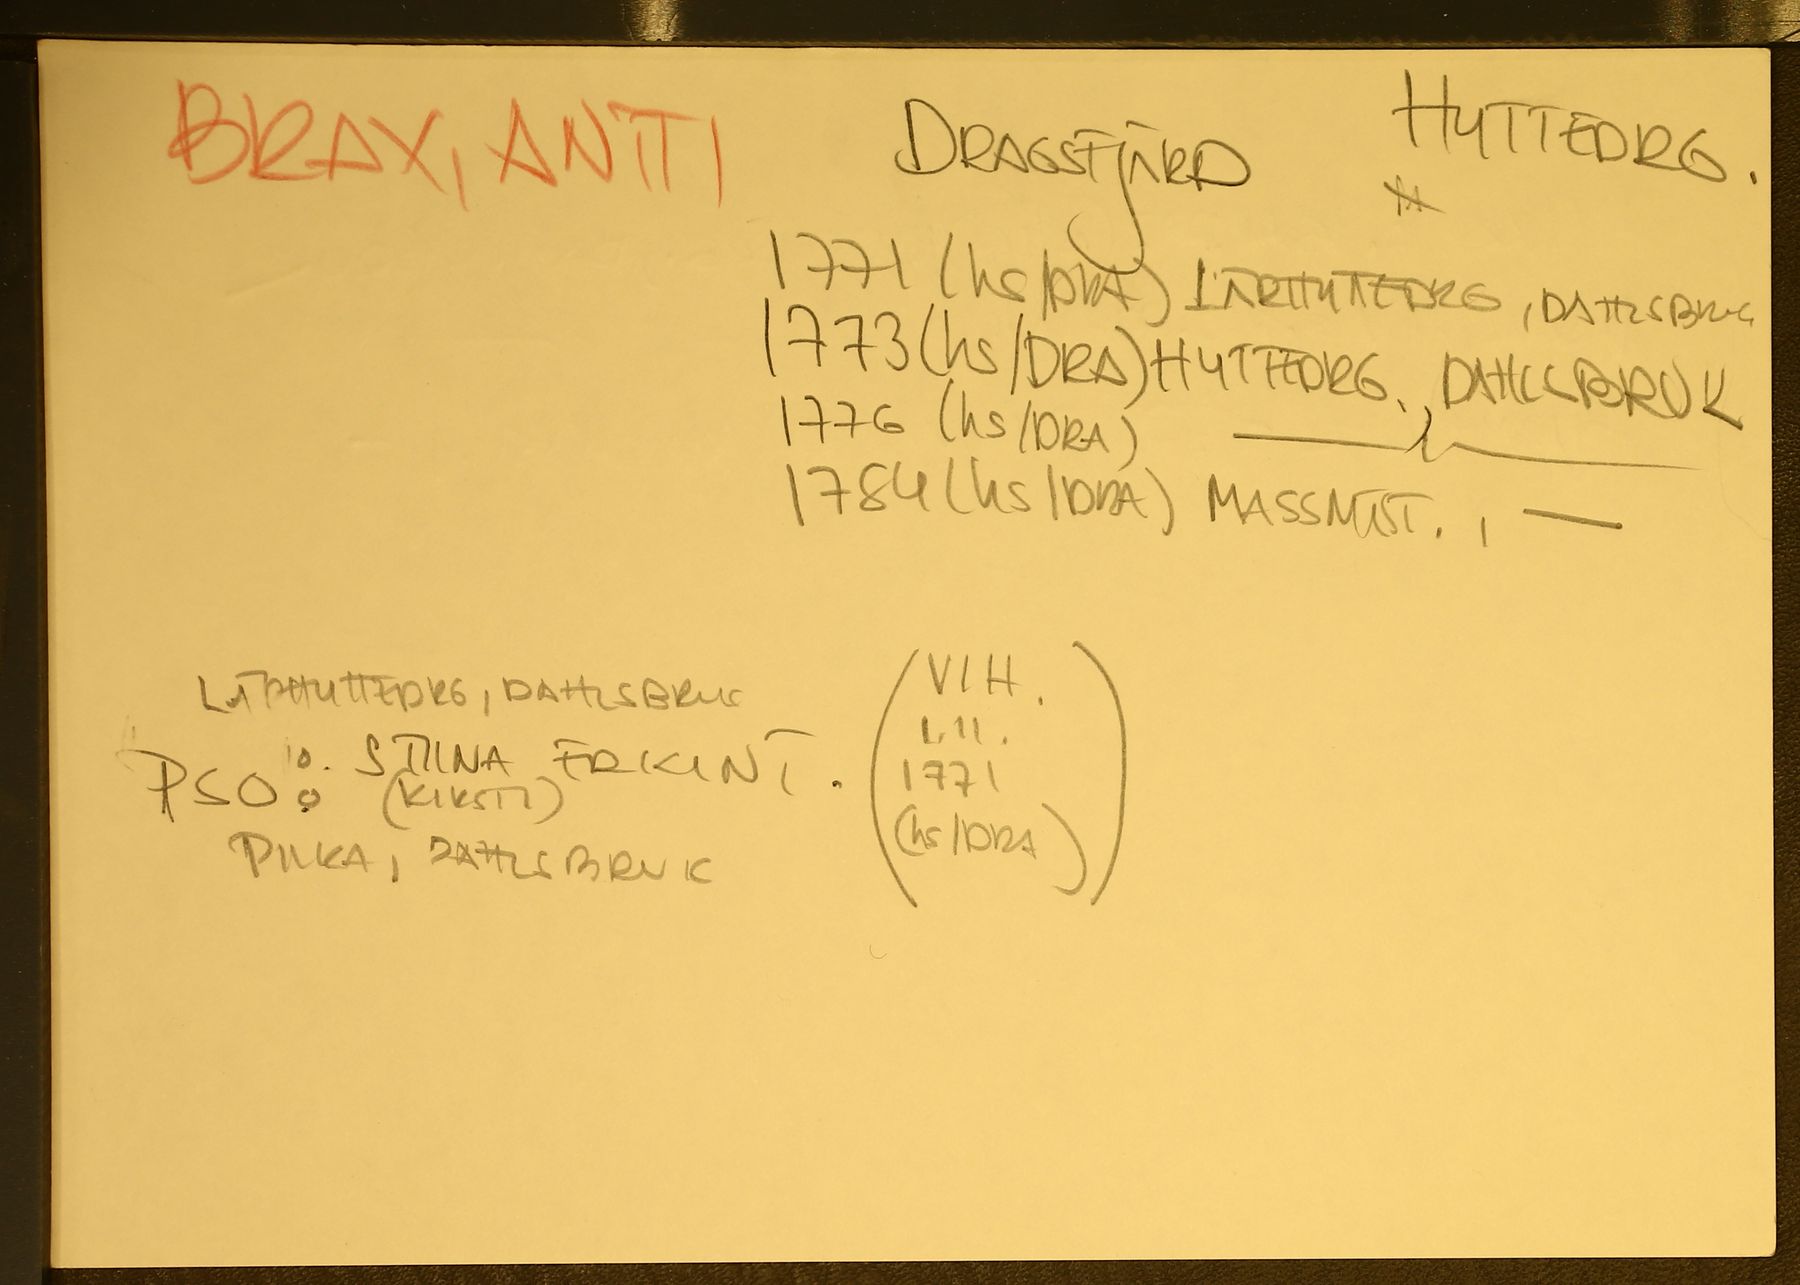 BRAX, ANTTI DRAGSFJÄRD HYTTEDRG.
1771 (hs/DRA) LÄRHYTTEDRG, DAHLSBRUG
1773 (hs/DRA) HYTTEDRG., DAHLSBRUK
1776 (hs/DRA) — , —
1784 (hs/DRA) MASSMÄST. , —
LÄRHYTTEDRG, DAHLSBRUG
PSO: 1:0. STIINA ERKINT.
(KIRSTI)
PIIKA, DAHLSBRUK
(VIH.
1.11.
1771
(hs/DRA)